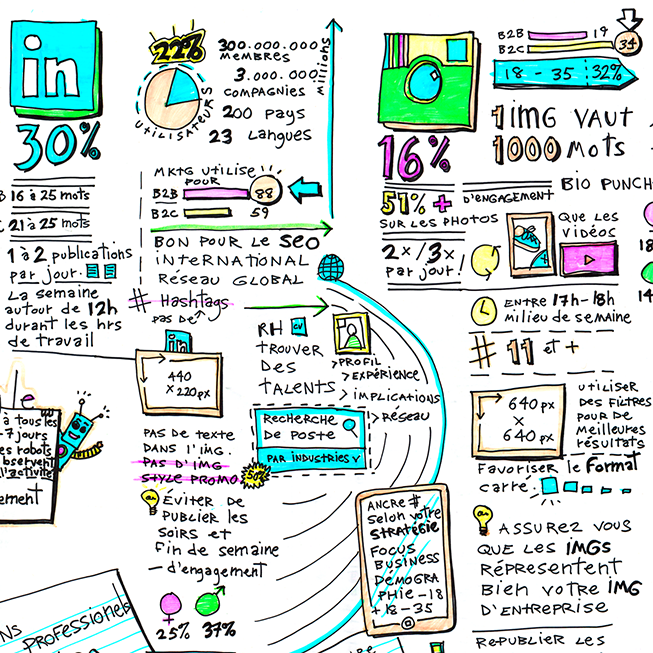 in
30%
B 16 à 25 mots
21 à 25 mots
1 à 2 publications
par jour.
La semaine
autour de 12h
durant les hrs
de travail
à tous les
-7 jours
es robots
observent
l'activité
ement
NS
PROFESSIONE
22%
UTILISATEURS
300.000.000
MEMBRES
3.000.000
COMPAGNIES
200 PAYS
23 Langues
millions
MKTG UTILISE
POUR
B2B 88
B2C 59
BON POUR LE SEO
INTERNATIONAL
RÉSEAU GLOBAL
# Hashtags
PAS DE
in
440
x 220 px
PAS DE TEXTE
DANS L'IMG.
PAS D'IMG
STYLE PROMO
50%
ÉVITER DE
PUBLIER les
SOIRS et
Fin de semaine
– d'engagement
25% 37%
RH CV
TROUVER
DES
TALENTS
>PROFIL
>EXPÉRIENCE
>IMPLICATIONS
>RÉSEAU
RECHERCHE
DE POSTE
PAR INDUSTRIES V
ANCRE #
Selon votre
STRATÉGIE
FOCUS
BUSINESS
DEMOGRA
PHIE -18
+18-35
16%
B2B 19
B2C 34
18 - 35 32%
1 IMG VAUT
1000 MOTS
BIO PUNCH
51% + D'ENGAGEMENT
SUR LES PHOTOS QUE LES
VIDÉOS
2x/3x
par jour!
ENTRE 17h-18h
milieu de semaine
# 11 et +
640 px
x
640 px
UTILISER
DES FILTRES
POUR DE
MEILLEURES
RÉSULTATS
Favoriser le Format
carré:
ASSUREZ VOUS
QUE LES IMGS
RÉPRESENTENT
Bien VOTRE IMG
D'ENTREPRISE
REPUBLIER LES